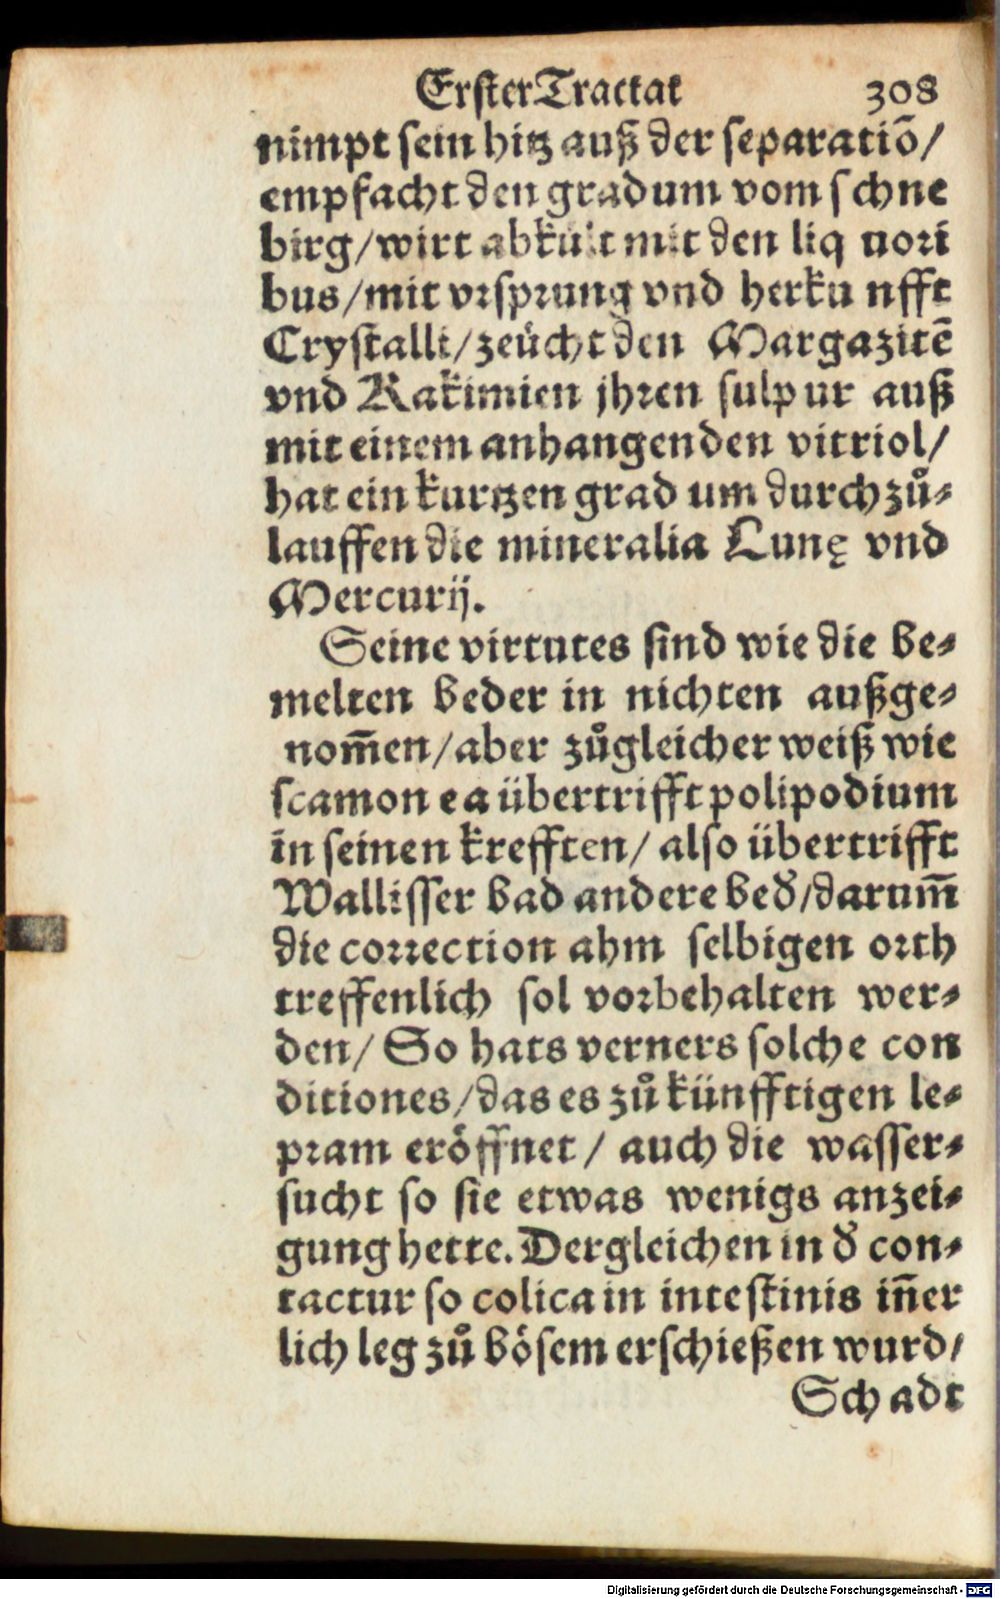 Erster Tractat 308
nimpt sein hitz auß der separatiõ/
empfacht den gradum vom schne
birg/wirt abkült mit den liq uori
bus/mit vrsprung vnd herku nfft
Crystalli/zeücht den Margazitẽ
vnd Kakimien jhren sulp ur auß
mit einem anhangenden vitriol/
hat ein kurtzen grad um durch zů⸗
lauffen die mineralia Lunę vnd
Mercurij.
Seine virtutes sind wie die be⸗
melten beder in nichten außge⸗
nom̃en/aber zůgleicher weiß wie
scamon ea übertrifft polipodium
in seinen krefften/ also übertrifft
Wallisser bad andere bed̛/darum̃
die correction ahm selbigen orth
treffenlich sol vorbehalten wer⸗
den/ So hats verners solche con
ditiones/das es zů künfftigen le⸗
pram eröffnet/ auch die wasser⸗
sucht so sie etwas wenigs anzei⸗
gung hette. Dergleichen in d̛ con⸗
tactur so colica in intestinis iñer
lich leg zů bösem erschießen wurd/
Schadt
Digitalisierung gefördert durch die Deutsche Forschungsgemeinschaft - DFG